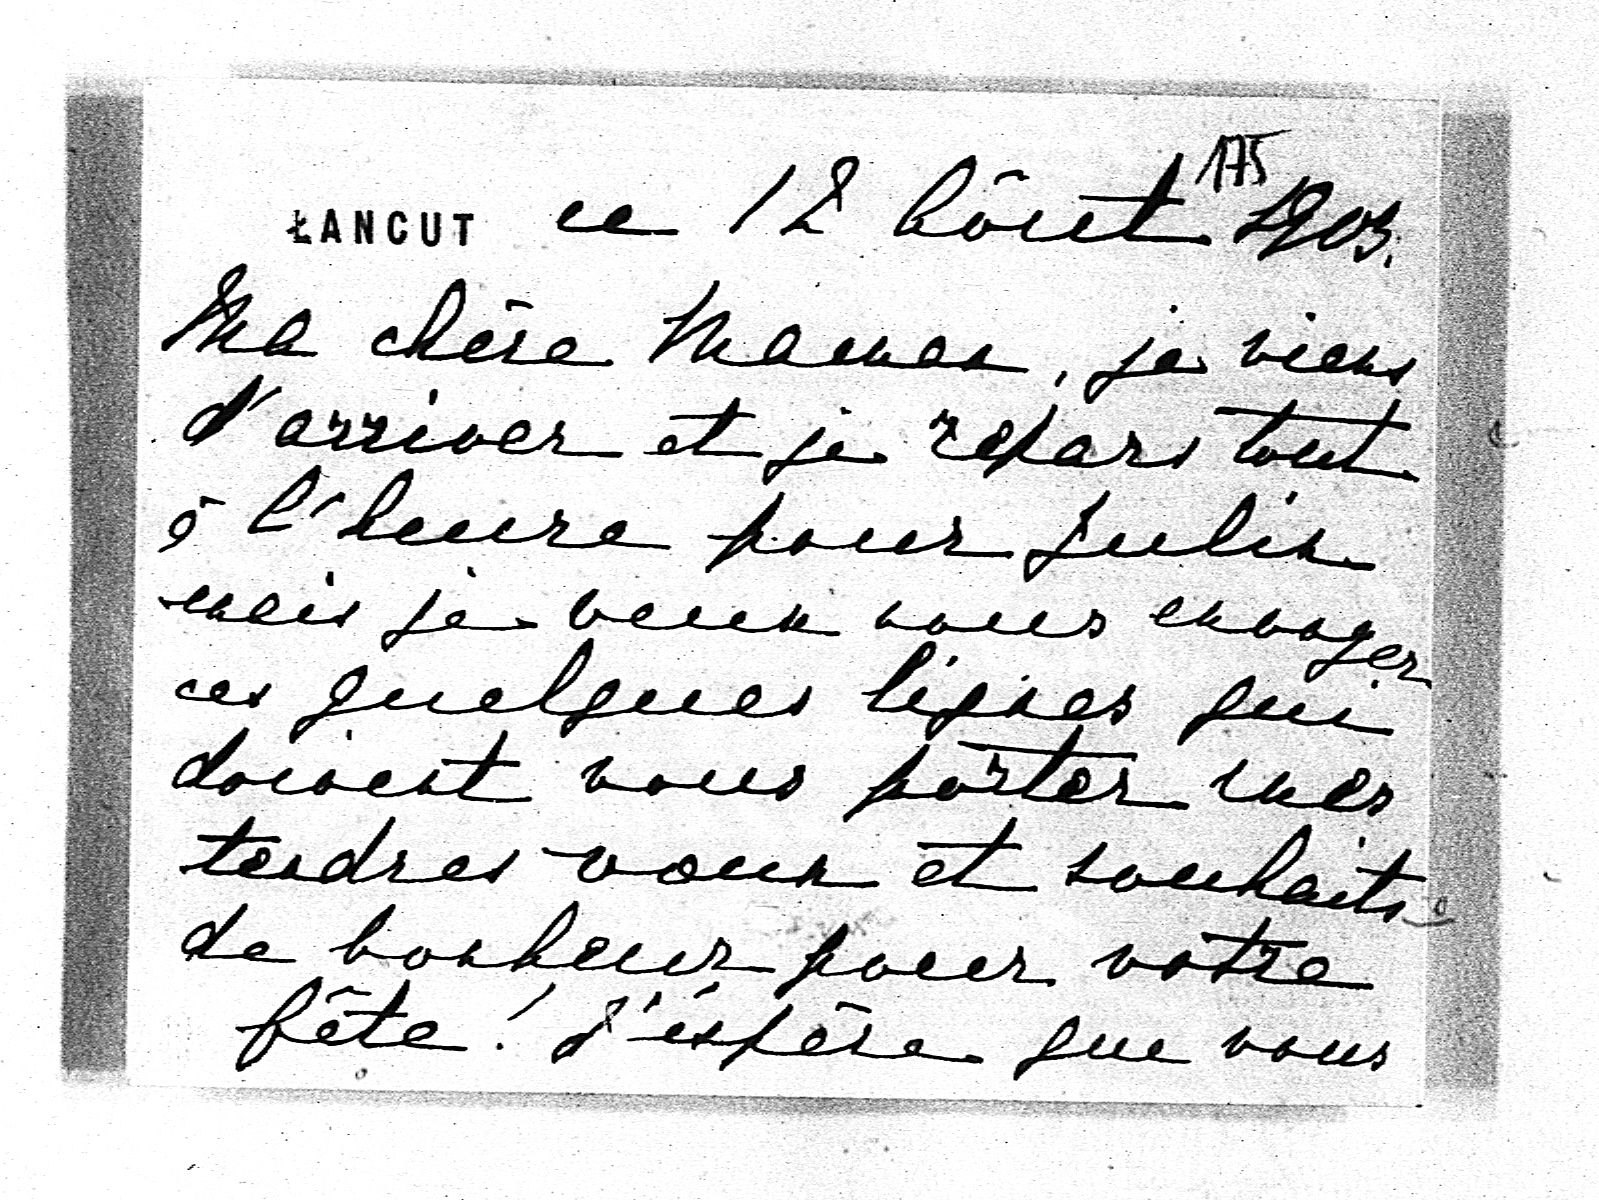 175
ŁANCUT ce 12 Aôut 1903.
Ma chère Maman, je viens
d'arriver et je repars tout
à l'heure pour Julin
mais je veux vous envoyer
ces quelques lignes qui
doivent vous porter mes
tendres vœux et souhaits
de bonheur pour votre
fête! J'éspère que vous